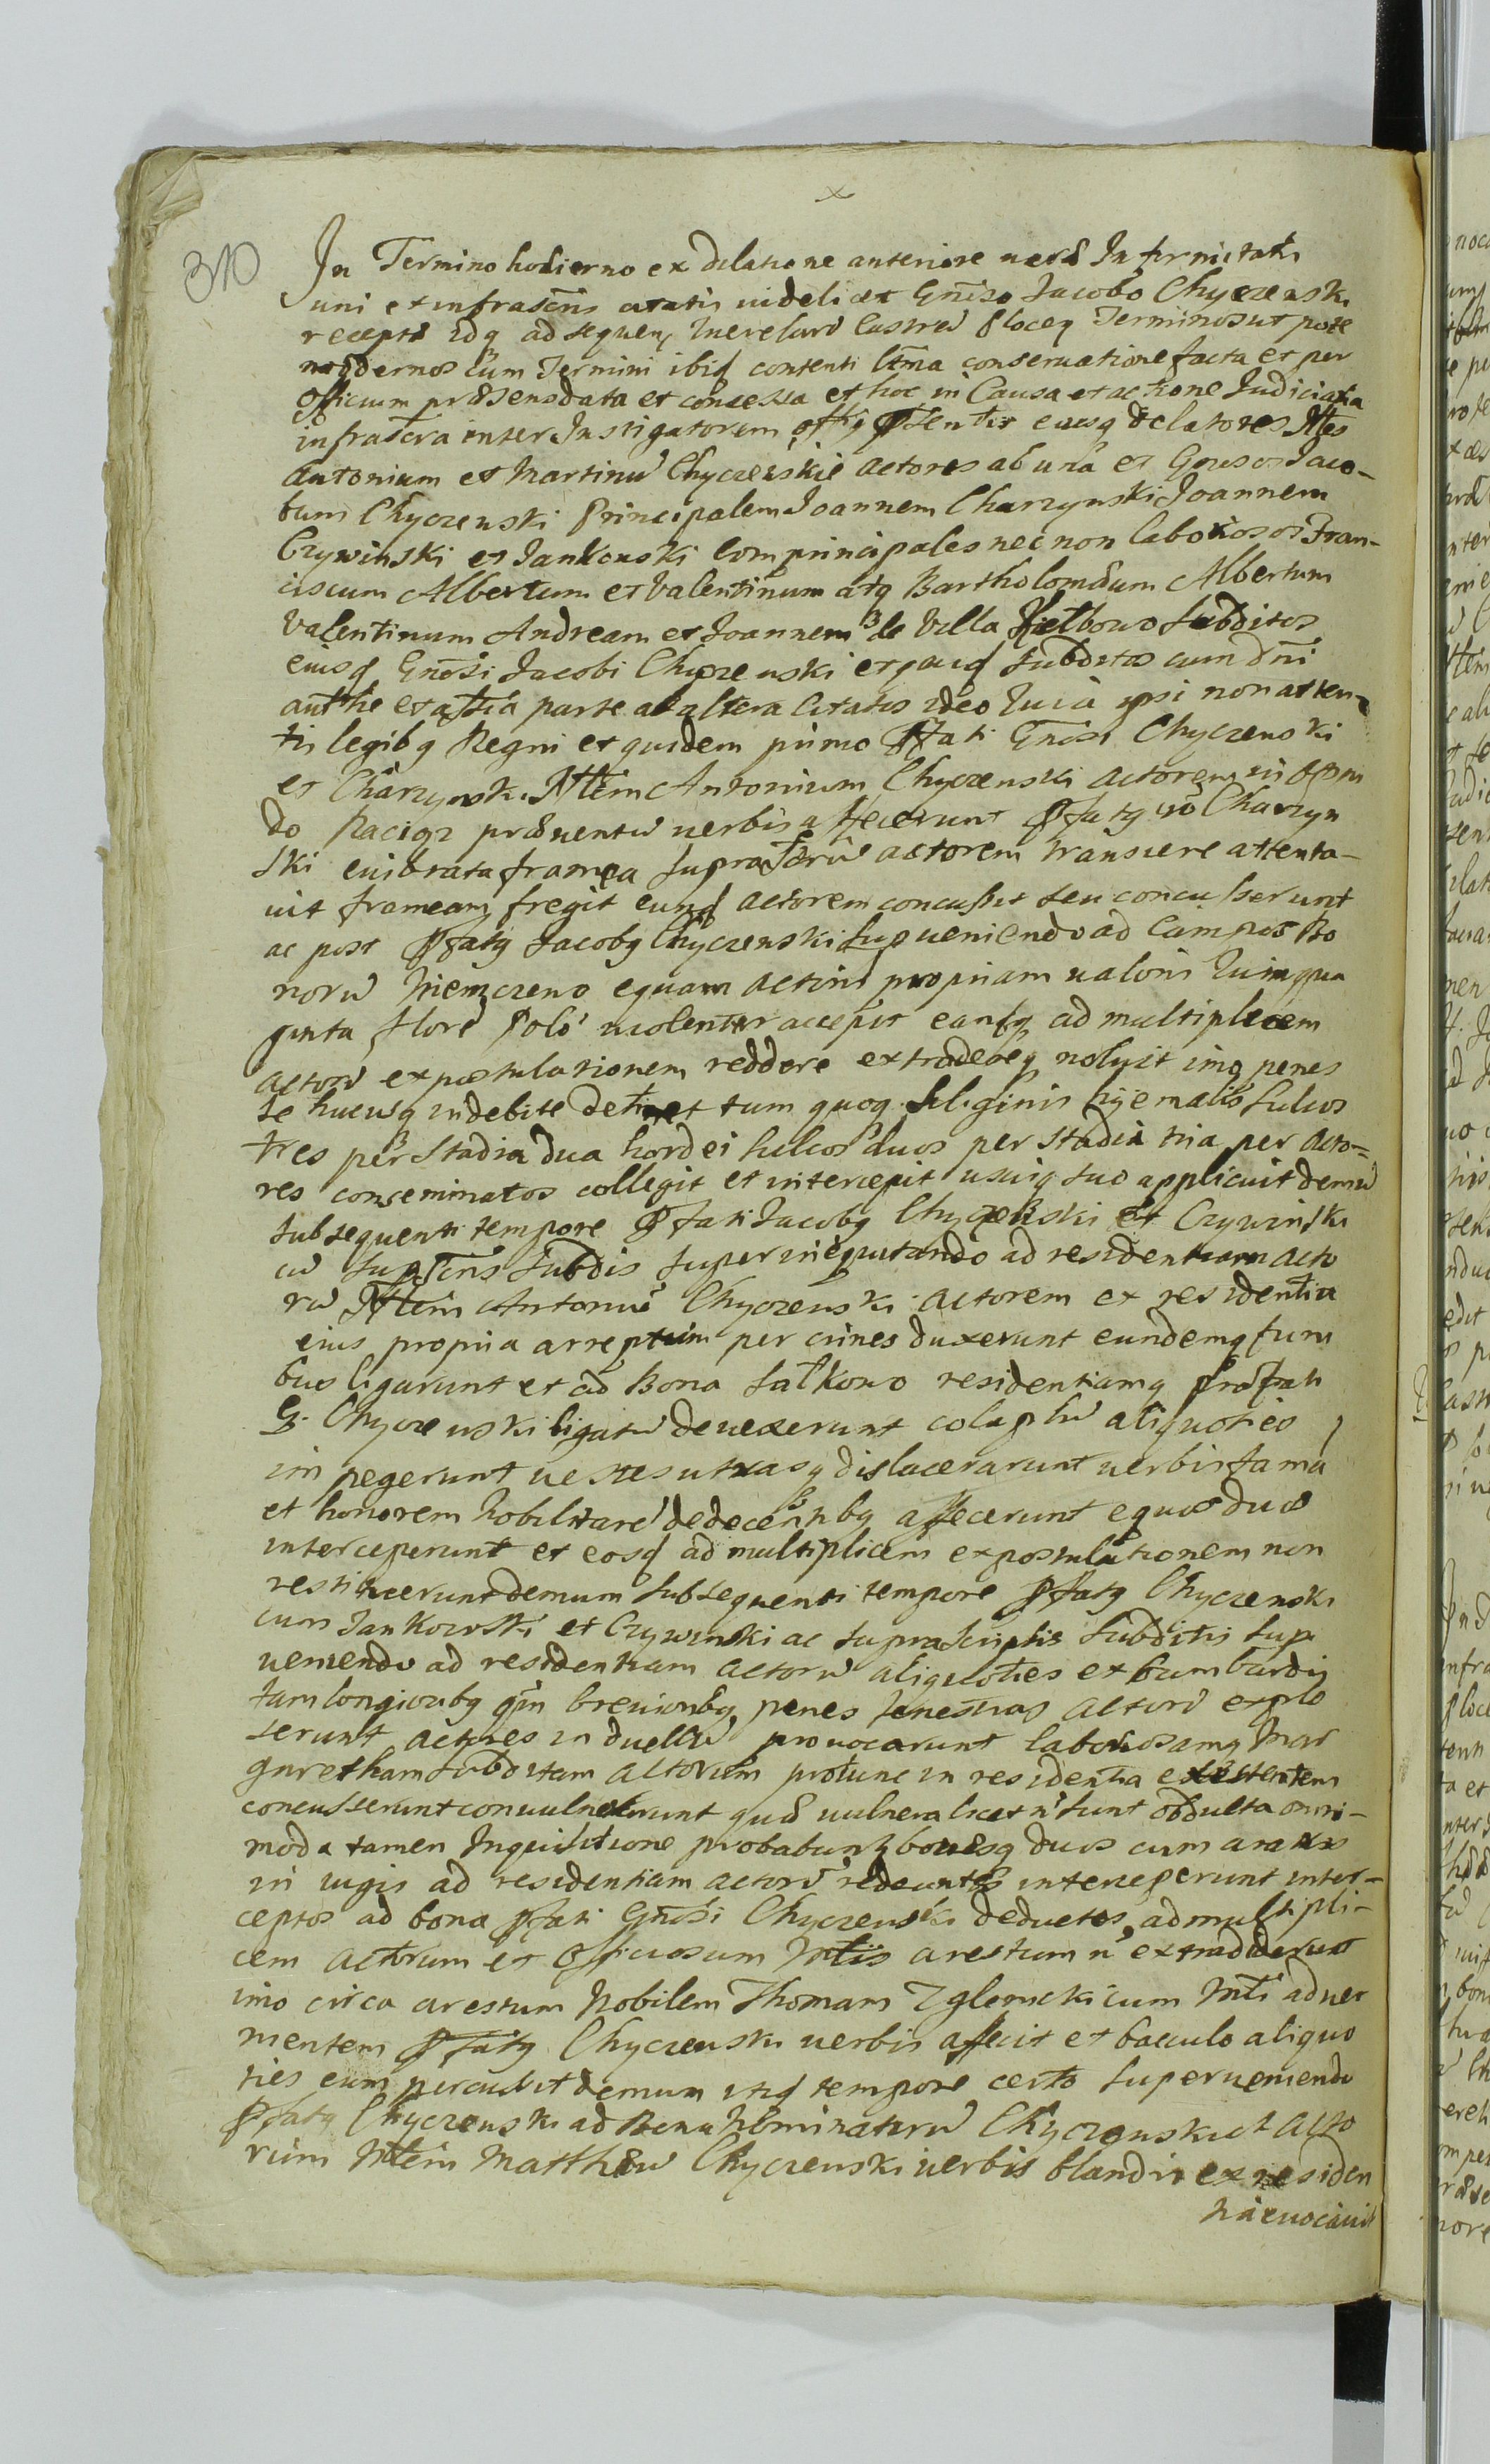 310
In Termino hodierno ex dilatione anteriore veræ Infirmitatis
uni ex infrascris citatis videlicet Gnoso Jacobo Chyczenski
recepta idq ad sequen Querelarū Castreū Plocen Terminos ut pote
modernos cum Termini ibid contenti conservatione facta et per
Officium præsens data et concessa et hoc in Causa et actione Judiciaria
infrascra inter Instigatorem Offii Psentis eiusq delatores Nles
Antonium et Martinū Chyczenskie actores ab una et Gnosos Jaco-
bum Chyczenski Principalem Joannem Charzynski Joannem
Czywinski et Jankowski Comprincipales nec non laboriosos Fran-
ciscum Albertum et Valentinum atq Bartholomæum Albertum
Valentinum Andream et Joannem de Villa subditos
eiusd Gnosi Jacobi Chyczenski subditos cum Dni
parte ab altera Citatos ideo Quia ipsi non atten-
tis legibq Regni et quidem primo Pfati Gnosi Chyczenski
et Charzynski Nlem Antonium Chyczenski actorem in
do Raciąz præventū verbis affecerunt Pfatq vō Charzyn
ski evibrata framea supraScrū actorem transire attenta-
vit frameam fregit eund actorem concussit seu concusserunt
ac post Pfatq Jacobq Chyczenski supveniendo ad Campos Bo
norū equam actoris propriam valoris Quinqua
ginta flore Polo violenter accepit eandq ad multiplicem
actorū expostulationem reddere extradereq noluit imo penes
se hucusq indebite detinet tum quoq siliginis hyemalis sulcos
tres per stadia dua hordei sulcos duos per stadia tria per acto-
res conseminatos collegit et intercepit usuiq suo applicuit demū
subsequenti tempore Pfati Jacobq Chyczenski et Czywinski
cū supScris subdis superinequitando ad residentiam acto
rū Nlem Antoniū Chyczenski actorem ex residentia
eius propria arreptum per crines duxerunt eundemq funi
bus ligarunt et ad Bona Sałkowo residentiamq Præfati
G. Chyczenski ligatū devexerunt colaphū aliquoties
impegerunt vestes utrasq dislacerarunt verbis fama
et honorem Nobilitare dedecentibq affecerunt equos duos
interceperunt et eosd ad multiplicem expostulationem non
restituerunt demum subsequenti tempore Pfatq Chyczenski
cum Jankowski et Czywinski ac supraScriptis subditis supe
veniendo ad residentiam actorū aliquoties ex bumbardis
tam longioribq qm brevioribq penes fenestras actorū explo
serunt actores in duellū provocarunt laboriosamq Mar
garetham subditam actorum protunc in residentia existentem
concusserunt convulnerarunt quæ vulnera licet n sunt obducta omni-
moda tamen Inquisitione probabunt bovesq duos cum aratro
in iugis ad residentiam actorū redeuntes interceperunt inter-
ceptos ad bona Pfati Gnosi Chyczenski deductos ad multipli-
cem actorum et Officiosum Mtis arestum n extradiderunt
imo circa arestum Nobilem Thomam Zglenicki cum Mti adve
nientem Pfatq Chyczenski verbis affecit et baculo aliquo
ties eum percussit demum itid tempore certo superveniendo
Pfatq Chyczenski ad Bona Nominatorū Chyczenskich acto
rum Nlem Matthæū Chyczenski verbis blandis ex residen
tia evocavit